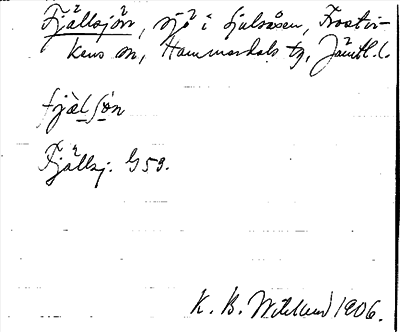 Fjällsjön, sjö i Sjulsåsen, Frostvi-
kens sn, Hammerdals tg, Jämtl. l.
fjàlsón
Fjällsj. G59.
K. B. Wiklund 1906.